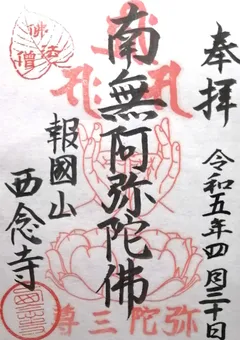 奉拝
令和五年四月三十日
南無阿弥陀佛
報國山
西念寺
佛法僧
弥陀三尊